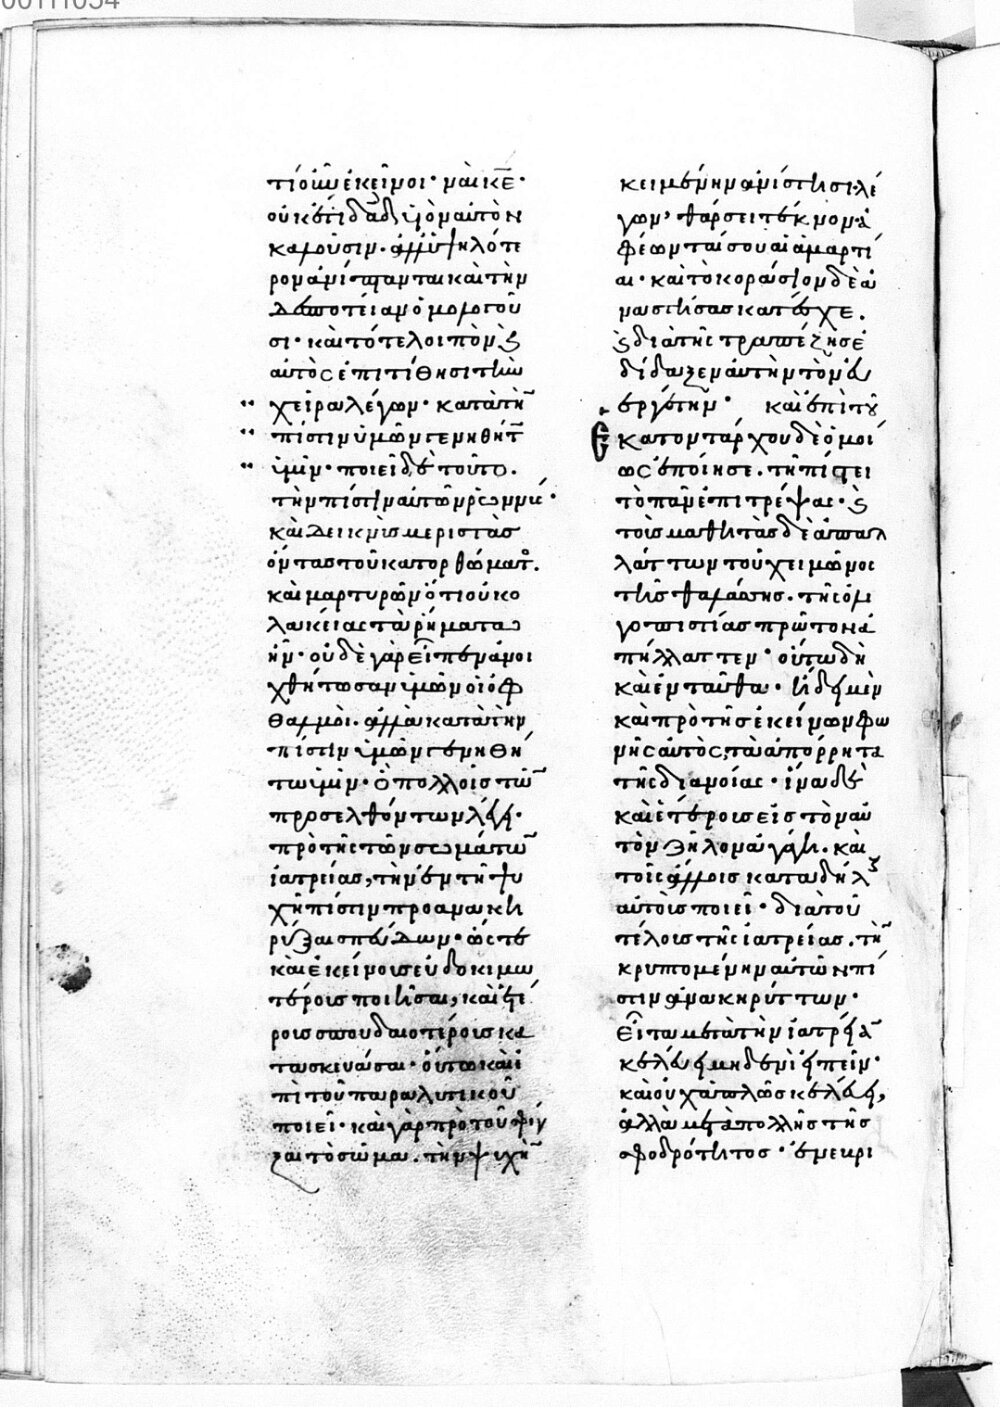 τί οὖν ἐκεῖνοι· ναὶ κε̅·
οὐκ ἔτι δᾱδ υἱὸν αὐτὸν
καλοῦσιν· ἀλλ' ὑψηλότε
ρον ἀνίπτανται καὶ τὴν
δεσποτείαν ὁμολογοῦ
σι· καὶ τότε λοιπὸν ϗ
αὐτὸς ἐπιτίθησι τὴν
χεῖρα λέγων· κατὰ τὴ̅
πίστιν ὑμῶν γενηθήτ̅
ὑμῖν· ποιεῖ δὲ τοῦτο.
τὴν πίστιν αὐτῶν ῥωννύς·
καὶ δεικνὺς μεριστὰς
ὄντας τοῦ κατορθώματ̅ο.
καὶ μαρτυρῶν ὅτι οὐ κο
λακείας τὰ ῥήματα
ἦν· οὐδὲ γὰρ εἶπεν ἀνοι
χθήτωσαν ὑμῶν οἱ ὀφ
θαλμοὶ. ἀλλὰ κατὰ τὴν
πίστιν ὑμῶν γενηθή
τω ὑμῖν· ὃ πολλοῖς τῶ̅
προσελθόντων λέγει·
πρὸ τῆς τῶν σωμάτω̅
ἰατρείας, τὴν ἐν τῆ ψυ
χῆ πίστιν προανακη
ρύξαι σπεύδων· ὥστε
καὶ ἐκείνους εὐδοκιμω
τέρους ποιῆσαι, καὶ ἑτέ
ρους σπουδαιοτέρους κα
τασκευάσαι· οὕτω καὶ ἐ
πὶ τοῦ παραλυτικοῦ
ποιεῖ· καὶ γὰρ πρὸ τοῦ σφίγ
ξαι τὸ σῶμα. τὴν ψυχὴ̅
κειμένην ἀνίστησι λέ
γων, θάρσει τέκνον ἀ
φέωνταί σου αἱ ἁμαρτί
αι· καὶ τὸ κοράσιον δὲ ἀ
ναστήσας κατέσχε.
ϗ διὰ τῆς τραπέζης ἐ
δίδαξεν αὐτὴν τὸν εὐ
εργέτην· καὶ ἐπὶ τοῦ
ἑκατοντάρχου δὲ ὁμοί
ως ἐποίησε. τῆ πίστει
τὸ πᾶν ἐπιτρέψας· ϗ
τοὺς μαθητὰς δὲ ἀπαλ
λάττων τοῦ χειμῶνος
τῆς θαλάσσης. τῆς ὀλι
γοπιστίας πρῶτον ἀ
πήλλαττεν· οὕτω δὴ
καὶ ἐνταῦθα· ἤδει μὲν
καὶ πρὸ τῆς ἐκείνων φω
νῆς αὐτὸς, τὰ ἀπόρρητα
τῆς διανοίας· ἵνα δὲ
καὶ ἑτέρους εἰς τὸν αὐ
τὸν ζῆλον ἀγάγη. καὶ
τοῖς ἄλλοις καταδήλους
αὐτοὺς ποιεῖ· διὰ τοῦ
τέλους τῆς ἰατρείας. τὴ̅
κρυπτομένην αὐτῶν πί
στιν ἀνακηρύττων·
εἶτα μετὰ τὴν ἰατρεία̅
κελεύει μηδενὶ εἰπεῖν·
καὶ οὐχ ἁπλῶς κελεύει,
ἀλλὰ μετὰ πολλῆς τῆς
σφοδρότητος· ἐνεβρι